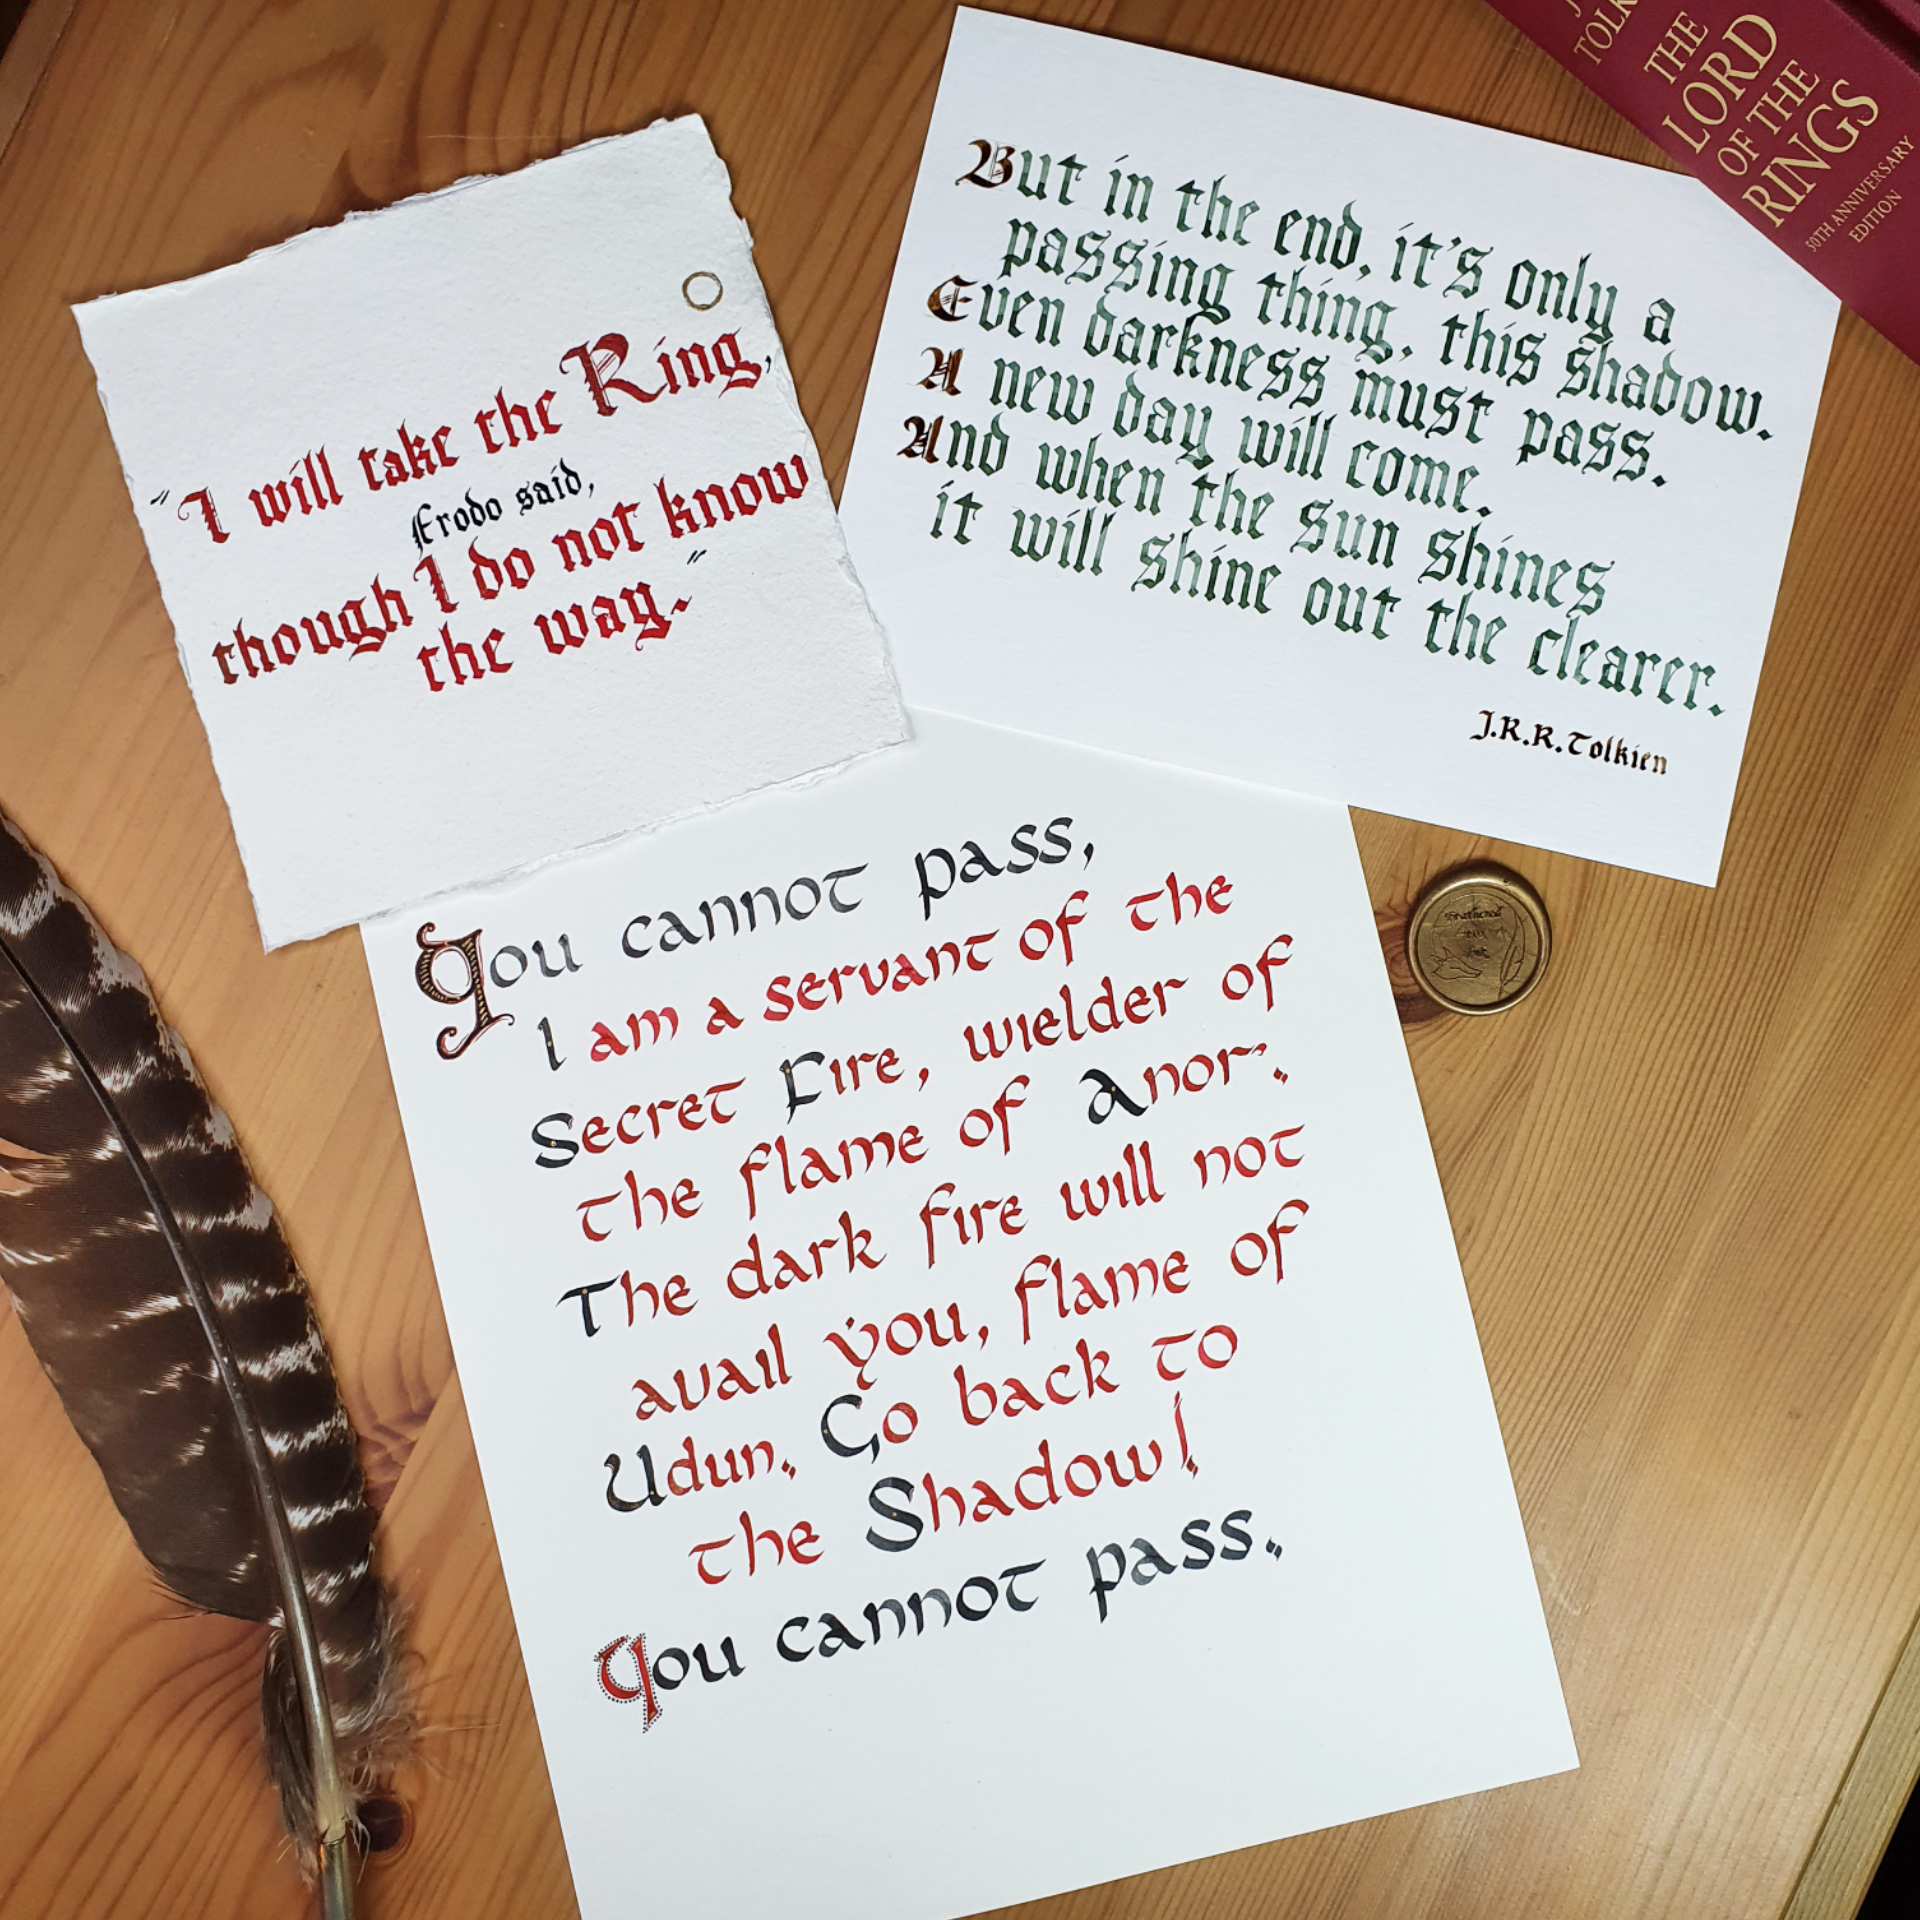 "I will take the Ring,
Frodo said,
though I do not know
the way."
But in the end, it's only a
passing thing, this shadow.
Even darkness must pass.
A new day will come.
And when the sun shines
it will shine out the clearer.
J.R.R.Tolkien
THE
LORD
OF THE
RINGS
50TH ANNIVERSARY
EDITION
You cannot pass,
I am a servant of the
Secret Fire, wielder of
the flame of Anor.
The dark fire will not
avail you, flame of
Udun. Go back to
the Shadow!
You cannot pass.